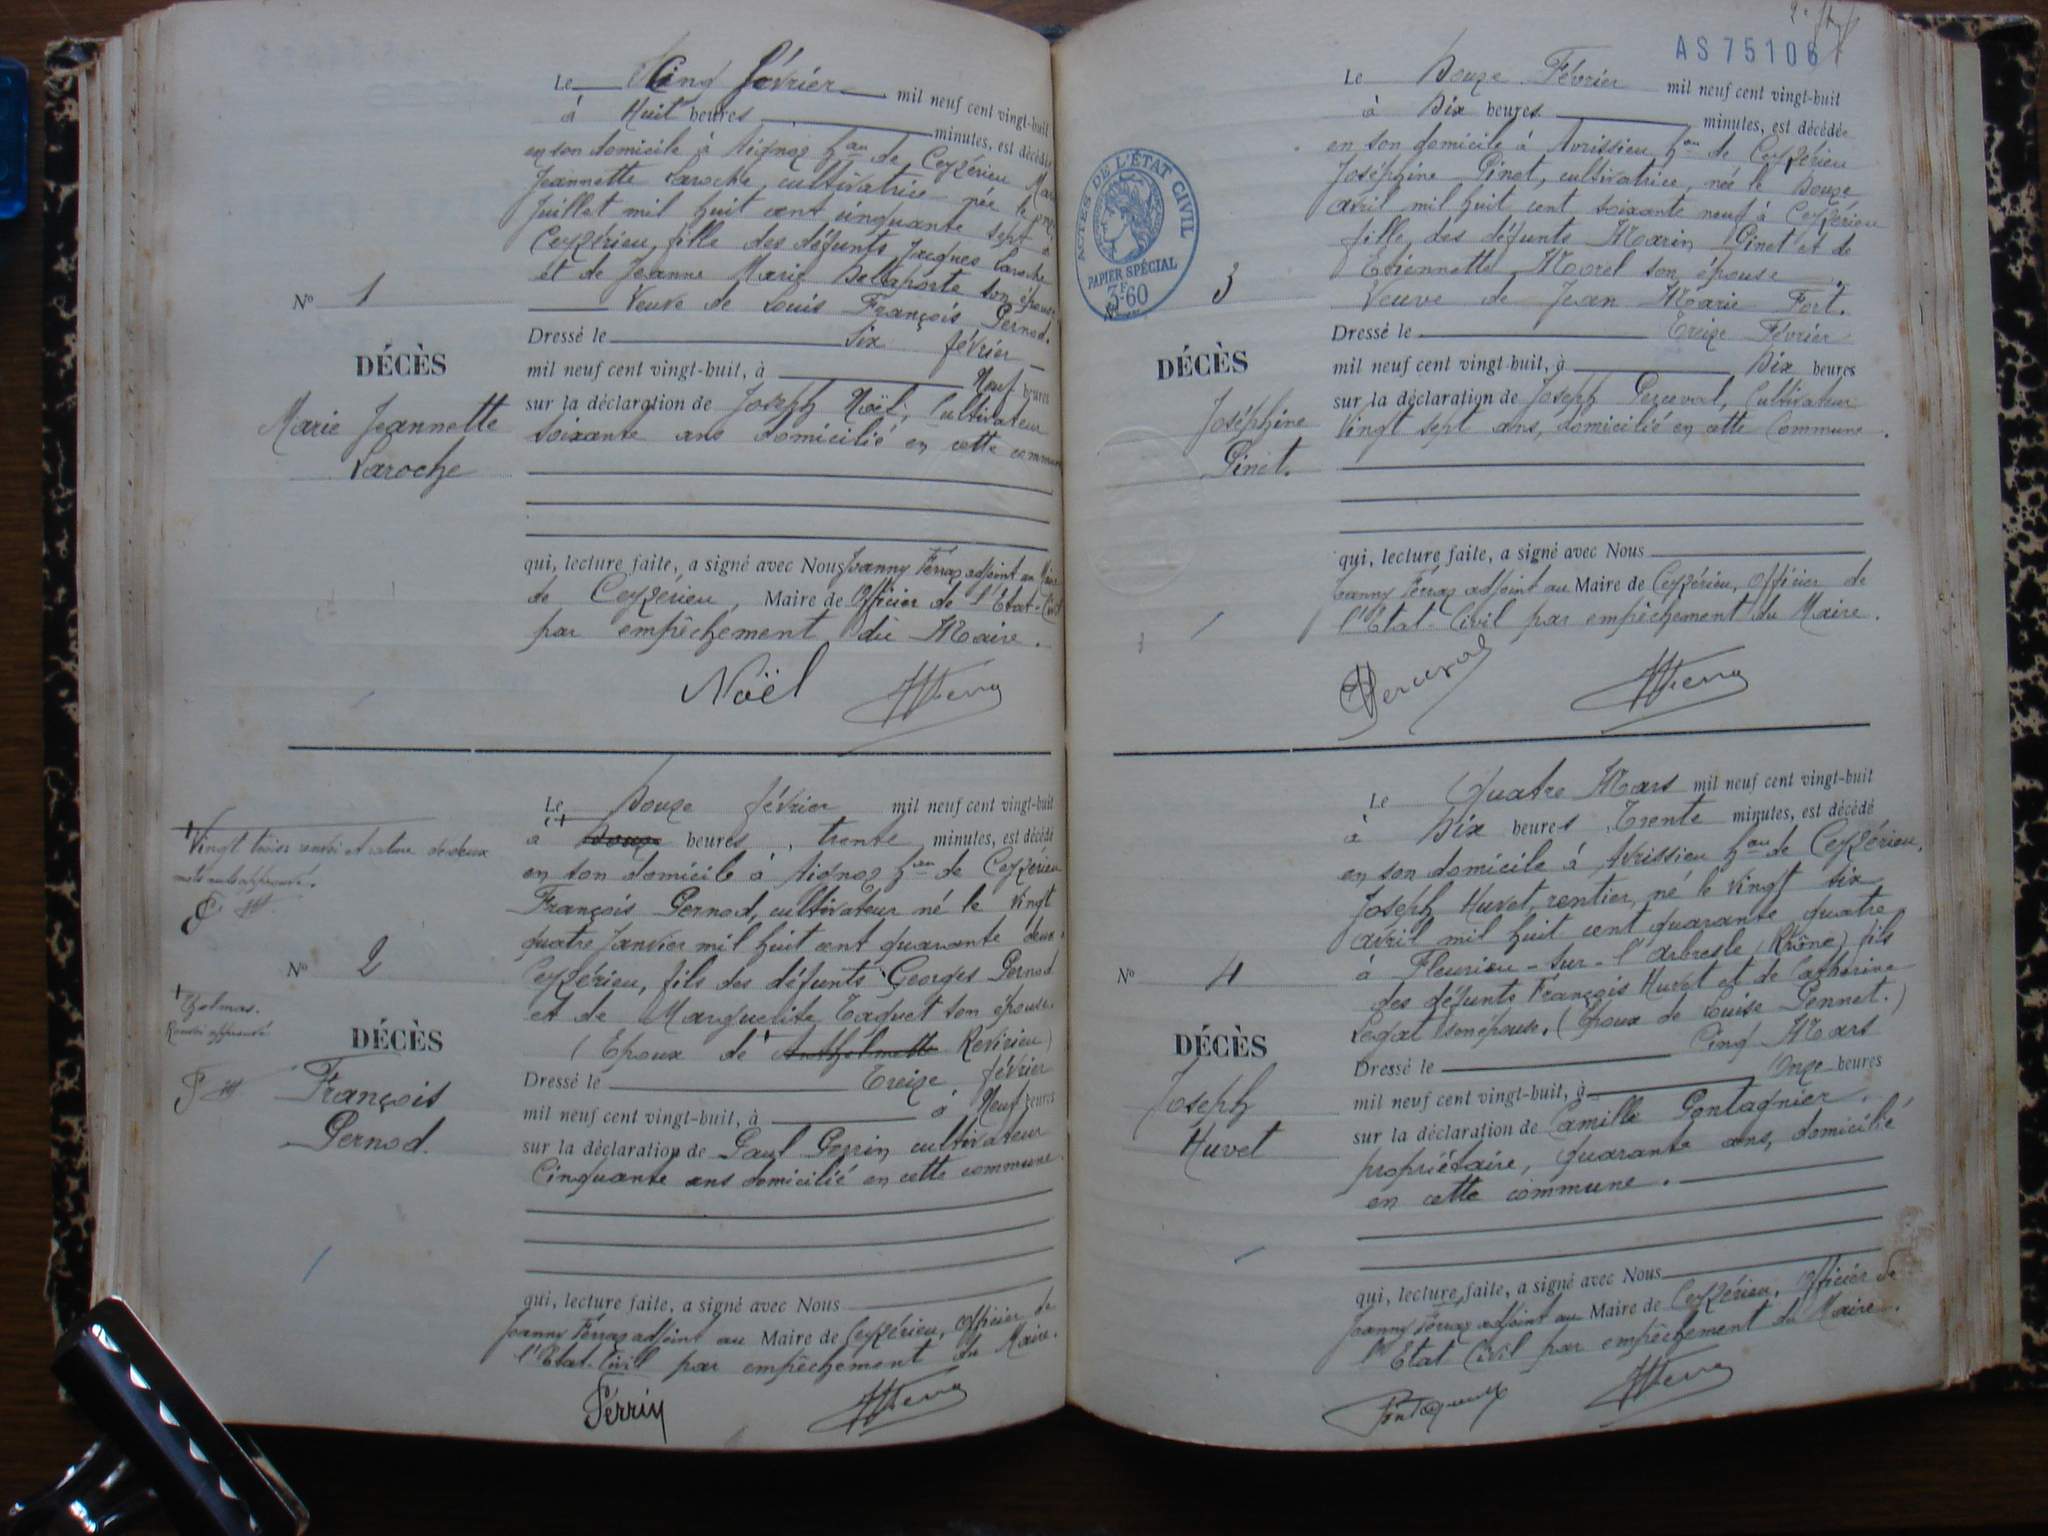 Le Cinq février mil neuf cent vingt-huit
à Huit heures minutes, est décédée
en son domicile à Aignoz hau de Ceyzérieu Marie
Jeannette Laroche, cultivatrice née le
Juillet mil huit cent cinquante sept à
Ceyzérieu, fille des défunts Jacques Laroche
et de Jeanne Marie Dellaporte son épouse
Veuve de Louis François Pernod.
N° 1
Dressé le Six février
DÉCÈS
mil neuf cent vingt-huit, à Neuf heures
Marie Jeannette
Laroche
sur la déclaration de Joseph Noël, Cultivateur
soixante ans domicilié en cette commune
qui, lecture faite, a signé avec Nous Joanny Ferraz adjoint au Maire
de Ceyzérieu, Maire de Officier de l'Etat-Civil
par empêchement du Maire.
Noël
Le Douze février mil neuf cent vingt-huit
à Douze heures, trente minutes, est décédé
Vingt trois renvoi et rature de deux
mots nuls approuvé.
en son domicile à Aignoz hau de Ceyzérieu
François Pernod, cultivateur né le vingt
quatre Janvier mil huit cent quarante deux
N° 2
Ceyzérieu, fils des défunts Georges Pernod
et de Marguerite Taquet son épouse
Thelmas.
Renvoi approuvé
(Epoux de Anthelmette Revirieu)
DÉCÈS
François
Pernod.
Dressé le Treize février
mil neuf cent vingt-huit, à à Neuf heures
sur la déclaration de Paul Perrin cultivateur
Cinquante ans domicilié en cette commune
qui, lecture faite, a signé avec Nous
Joanny Ferraz adjoint au Maire de Ceyzérieu, Officier de
l'Etat-Civil par empêchement du Maire.
Perrin
AS 75106
Le Douze Février mil neuf cent vingt-huit
à Dix heures minutes, est décédée
en son domicile à Avrissieu hau de Ceyzérieu
Joséphine Pinet, cultivatrice, née le Douze
avril mil huit cent soixante neuf à Ceyzérieu
fille des défunts Marin Pinet et de
Etiennette Morel son épouse
Veuve de Jean Marie Fort.
ACTES DE L'ÉTAT CIVIL
PAPIER SPÉCIAL
3F60
N° 3
Dressé le Treize Février
DÉCÈS
mil neuf cent vingt-huit, à Dix heures
Joséphine
Pinet.
sur la déclaration de Joseph Perceval, Cultivateur
Vingt sept ans, domicilié en cette Commune.
qui, lecture faite, a signé avec Nous
Joanny Ferraz adjoint au Maire de Ceyzérieu, Officier de
l'Etat-Civil par empêchement du Maire.
Perceval
Le Quatre Mars mil neuf cent vingt-huit
à Dix heures Trente minutes, est décédé
en son domicile à Avrissieu hau de Ceyzérieu,
Joseph Huvet, rentier, né le vingt six
avril mil huit cent quarante quatre
à Fleurieu-sur-l'arbresle (Rhône) fils
N° 4
des défunts François Huvet et de Catherine
Legat son épouse. (Epoux de Louise Pennet.)
DÉCÈS
Joseph
Huvet
Dressé le Cinq Mars
mil neuf cent vingt-huit, à Onze heures
sur la déclaration de Camille Pontagnier,
propriétaire, quarante ans, domicilié
en cette commune.
qui, lecture faite, a signé avec Nous
Joanny Ferraz adjoint au Maire de Ceyzérieu, Officier de
l'Etat Civil par empêchement du Maire.